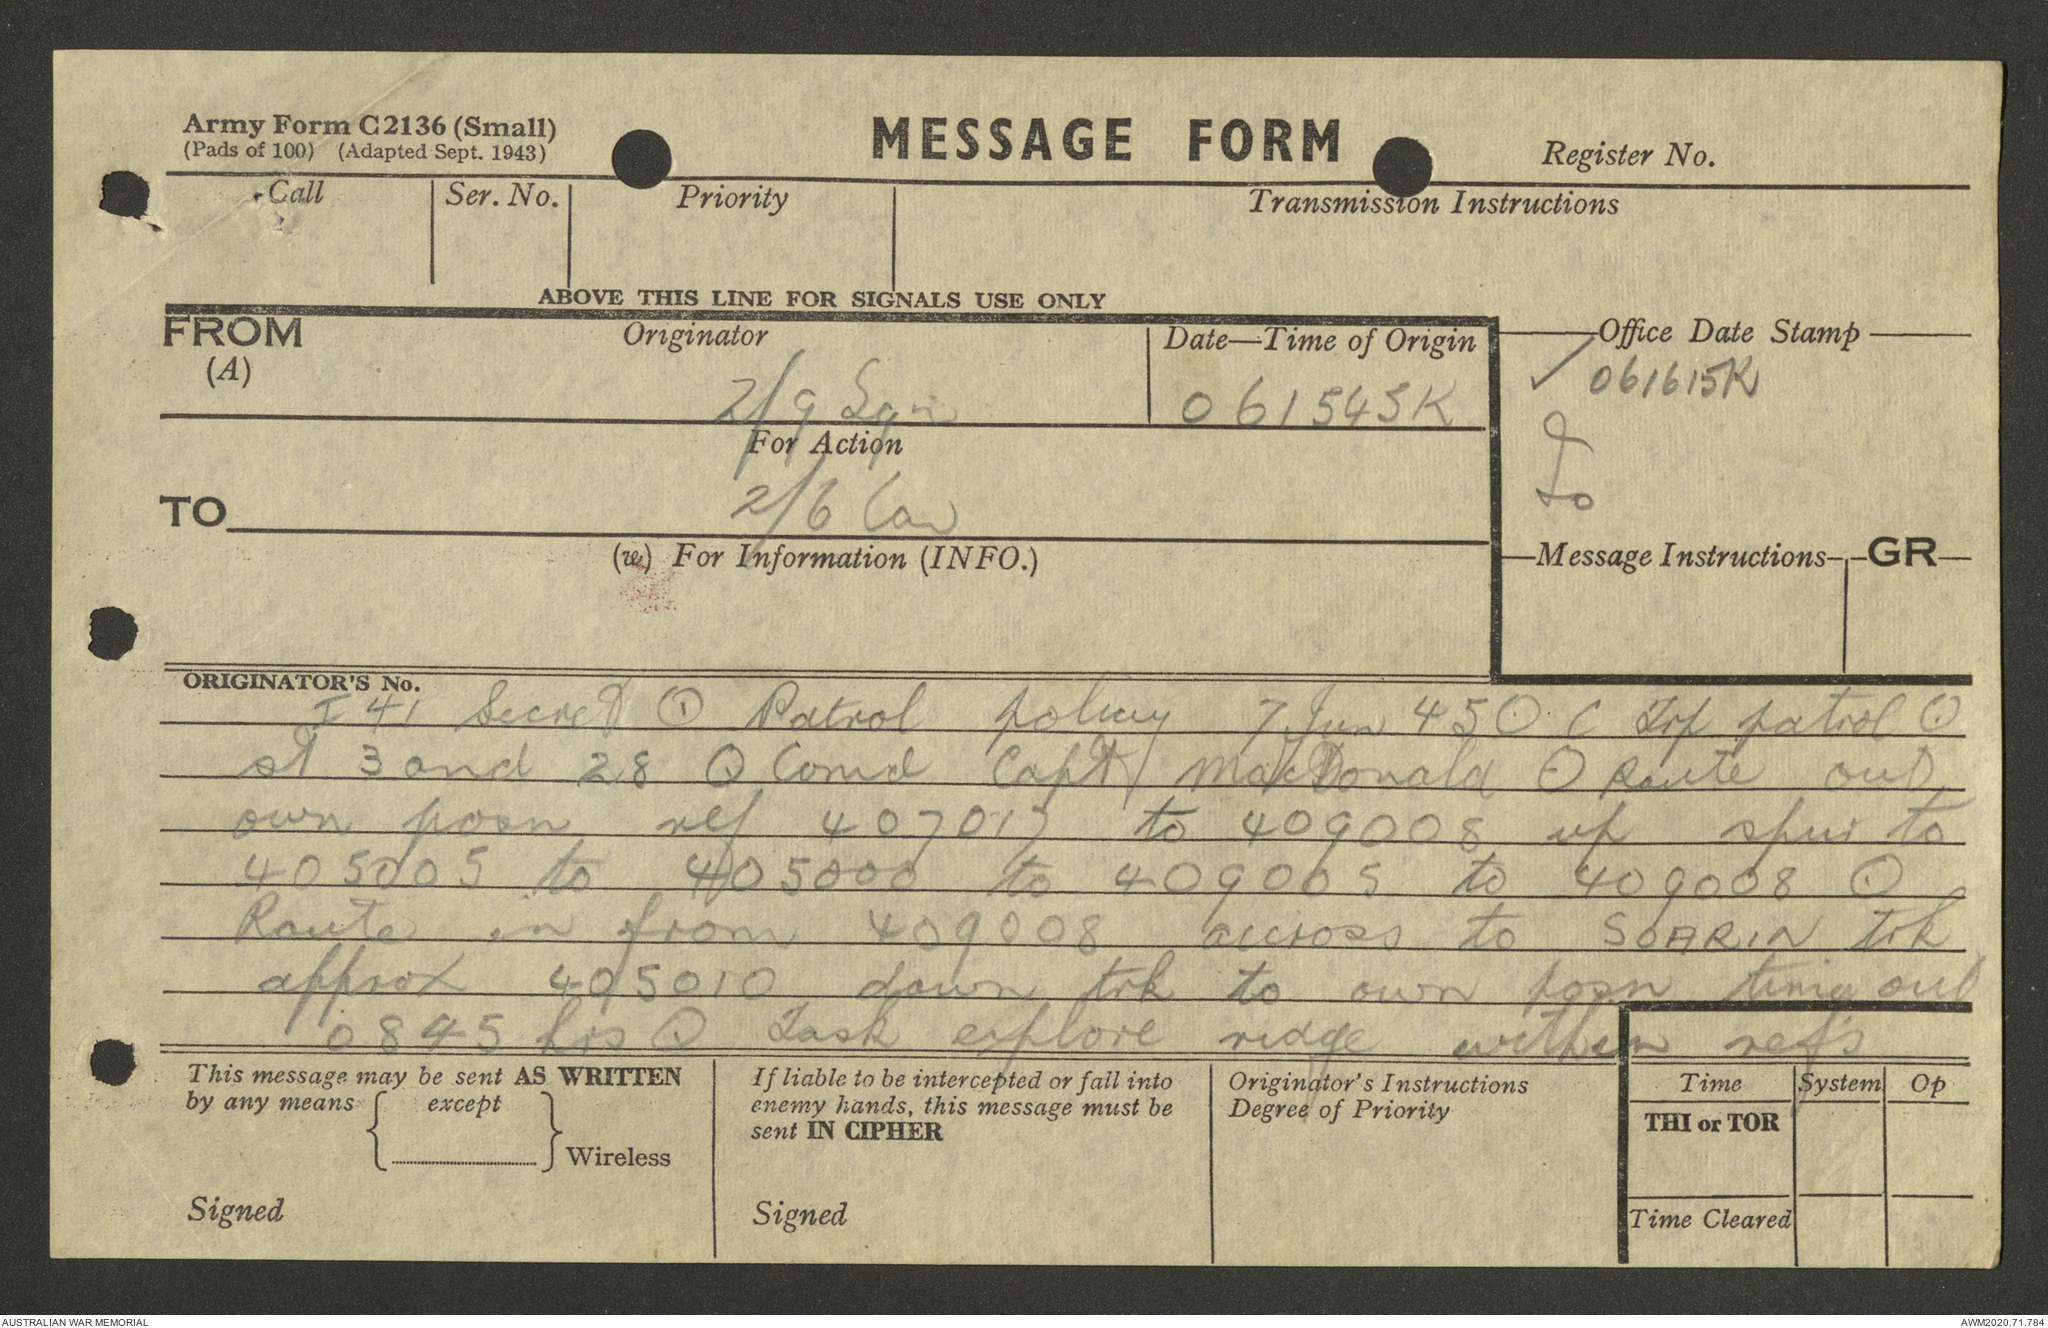 Army Form C2136 (Small)
(Pads of 100) (Adapted Sept. 1943)
MESSAGE FORM
Register No.
Call
Ser. No.
Priority
Transmission Instructions
ABOVE THIS LINE FOR SIGNALS USE ONLY
FROM
(A)
Originator
2/9 Sqn
Date—Time of Origin
061545K
Office Date Stamp
061615K
For Action
TO
2/6 Cav
IO
(w) For Information (INFO.)
Message Instructions
GR
ORIGINATOR'S No.
I 41 Secret ⊙ Patrol policy 7 Jun 45 ⊙ C Trp patrol ⊙
st 3 and 28 ⊙ Comd Capt MacDonald ⊙ Route out
own posn ref 407017 to 409008 up spur to
405005 to 405000 to 409005 to 409008 ⊙
Route in from 409008 across to SOARIN trk
approx 405010 down trk to own posn timing out
0845 hrs ⊙ Task explore ridge within refs
This message may be sent AS WRITTEN
by any means except
Wireless
Signed
If liable to be intercepted or fall into
enemy hands, this message must be
sent IN CIPHER
Signed
Originator's Instructions
Degree of Priority
Time
System
Op
THI or TOR
Time Cleared
AUSTRALIAN WAR MEMORIAL
AWM2020.71.784